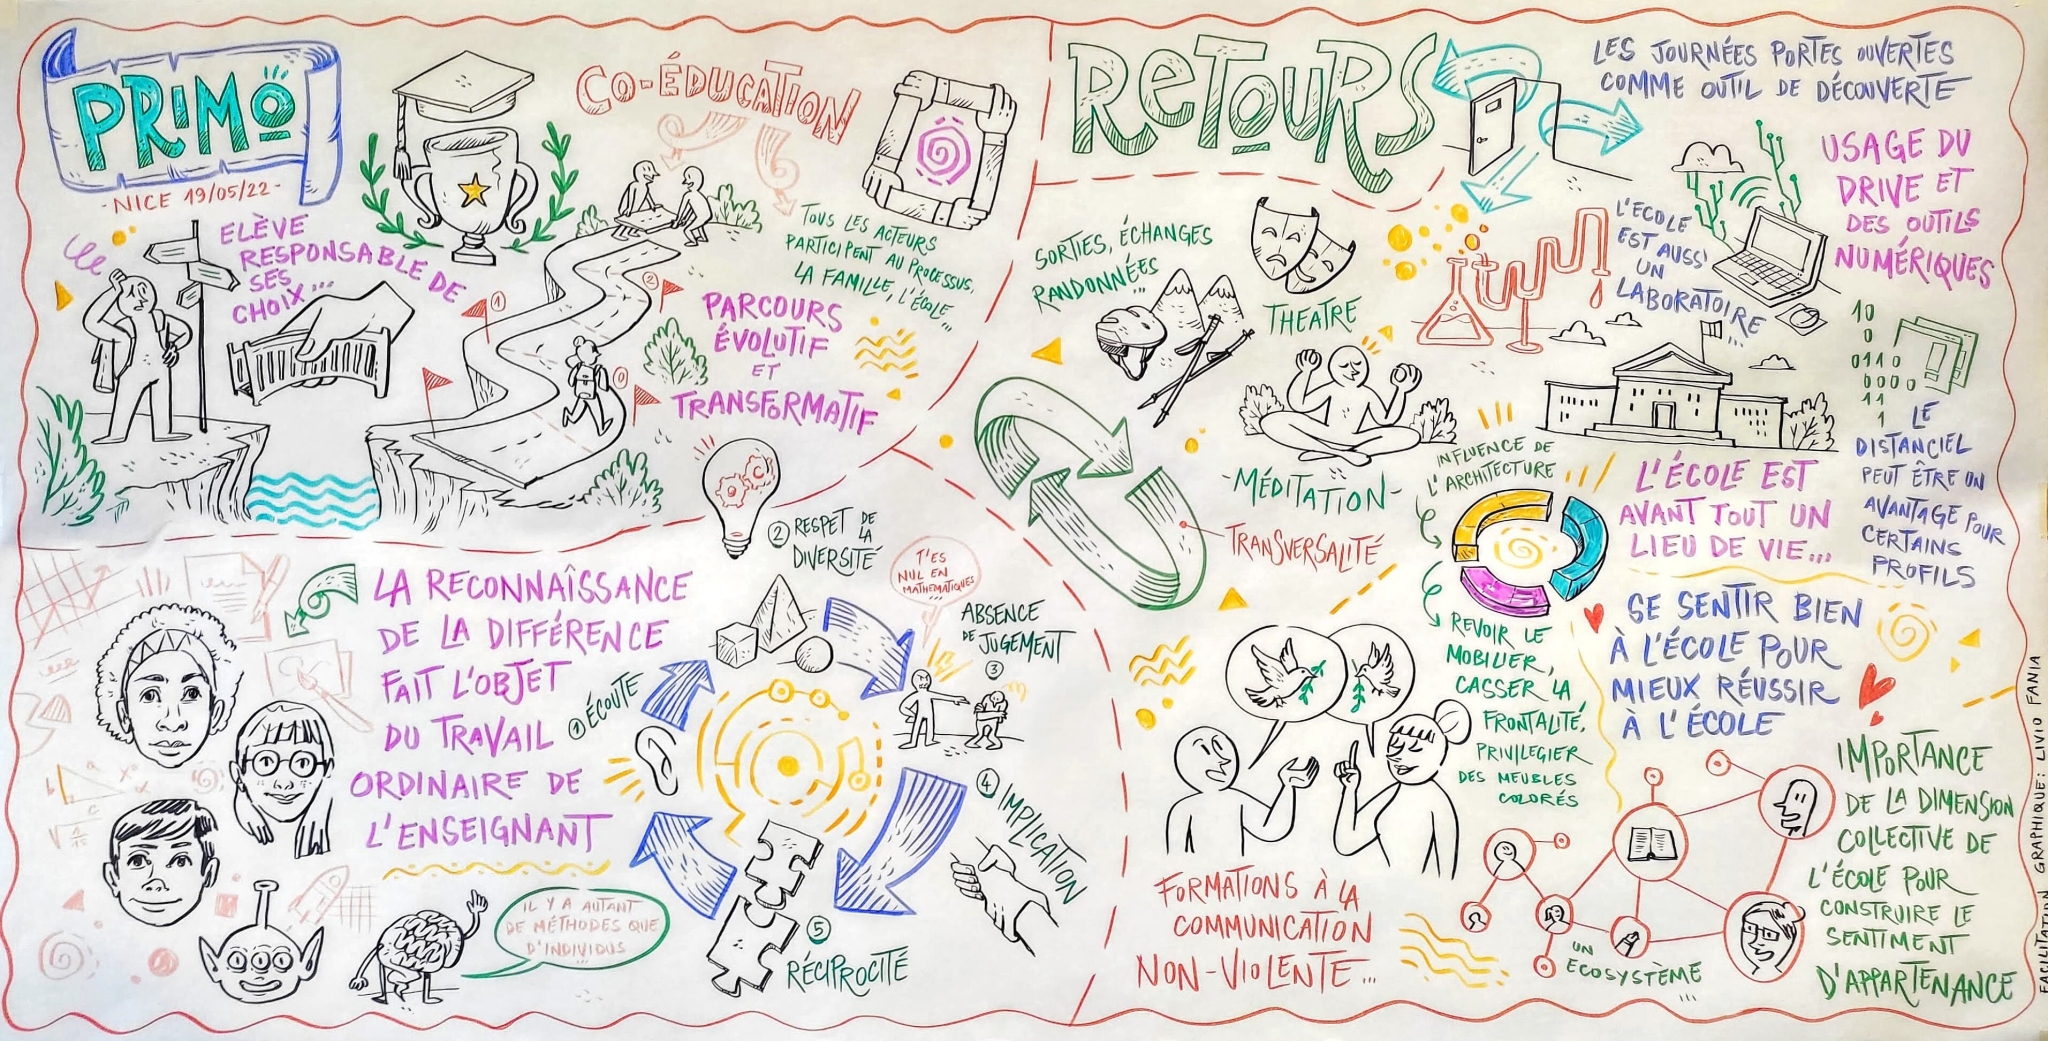 PRIMO
- NICE 19/05/22 -
ELÈVE
RESPONSABLE DE
SES
CHOIX...
CO-ÉDUCATION
TOUS LES ACTEURS
PARTICIPENT AU PROCESSUS.
LA FAMILLE, L'ÉCOLE...
0
1
2
PARCOURS
ÉVOLUTIF
ET
TRANSFORMATIF
LA RECONNAÎSSANCE
DE LA DIFFÉRENCE
FAIT L'OBJET
DU TRAVAIL
ORDINAIRE DE
L'ENSEIGNANT
a
b
c
IL Y A AUTANT
DE MÉTHODES QUE
D'INDIVIDUS
...
1 ÉCOUTE
2 RESPET DE
LA
DIVERSITÉ
T'ES
NUL EN
MATHEMATIQUES
...
ABSENCE
DE JUGEMENT
3
4 IMPLICATION
5
RÉCIPROCITÉ
RETOURS
LES JOURNÉES PORTES OUVERTES
COMME OUTIL DE DÉCOUVERTE
SORTIES, ÉCHANGES
RANDONNÉES
...
THEATRE
- MÉDITATION -
TRANSVERSALITÉ
L'ECOLE
EST AUSSI
UN
LABORATOIRE
...
USAGE DU
DRIVE ET
DES OUTILS
NUMÉRIQUES
10
0
0110
0000
11
1
LE
DISTANCIEL
PEUT ÊTRE UN
AVANTAGE POUR
CERTAINS
PROFILS
INFLUENCE DE
L'ARCHITECTURE
L'ÉCOLE EST
AVANT TOUT UN
LIEU DE VIE...
REVOIR LE
MOBILIER,
CASSER LA
FRONTALITÉ,
PRIVILEGIER
DES MEUBLES
COLORÉS
SE SENTIR BIEN
À L'ÉCOLE POUR
MIEUX RÉUSSIR
À L'ÉCOLE
FORMATIONS À LA
COMMUNICATION
NON-VIOLENTE...
UN
ECOSYSTÈME
...
IMPORTANCE
DE LA DIMENSION
COLLECTIVE DE
L'ÉCOLE POUR
CONSTRUIRE LE
SENTIMENT
D'APPARTENANCE
FACILITATION GRAPHIQUE: LIVIO FANIA